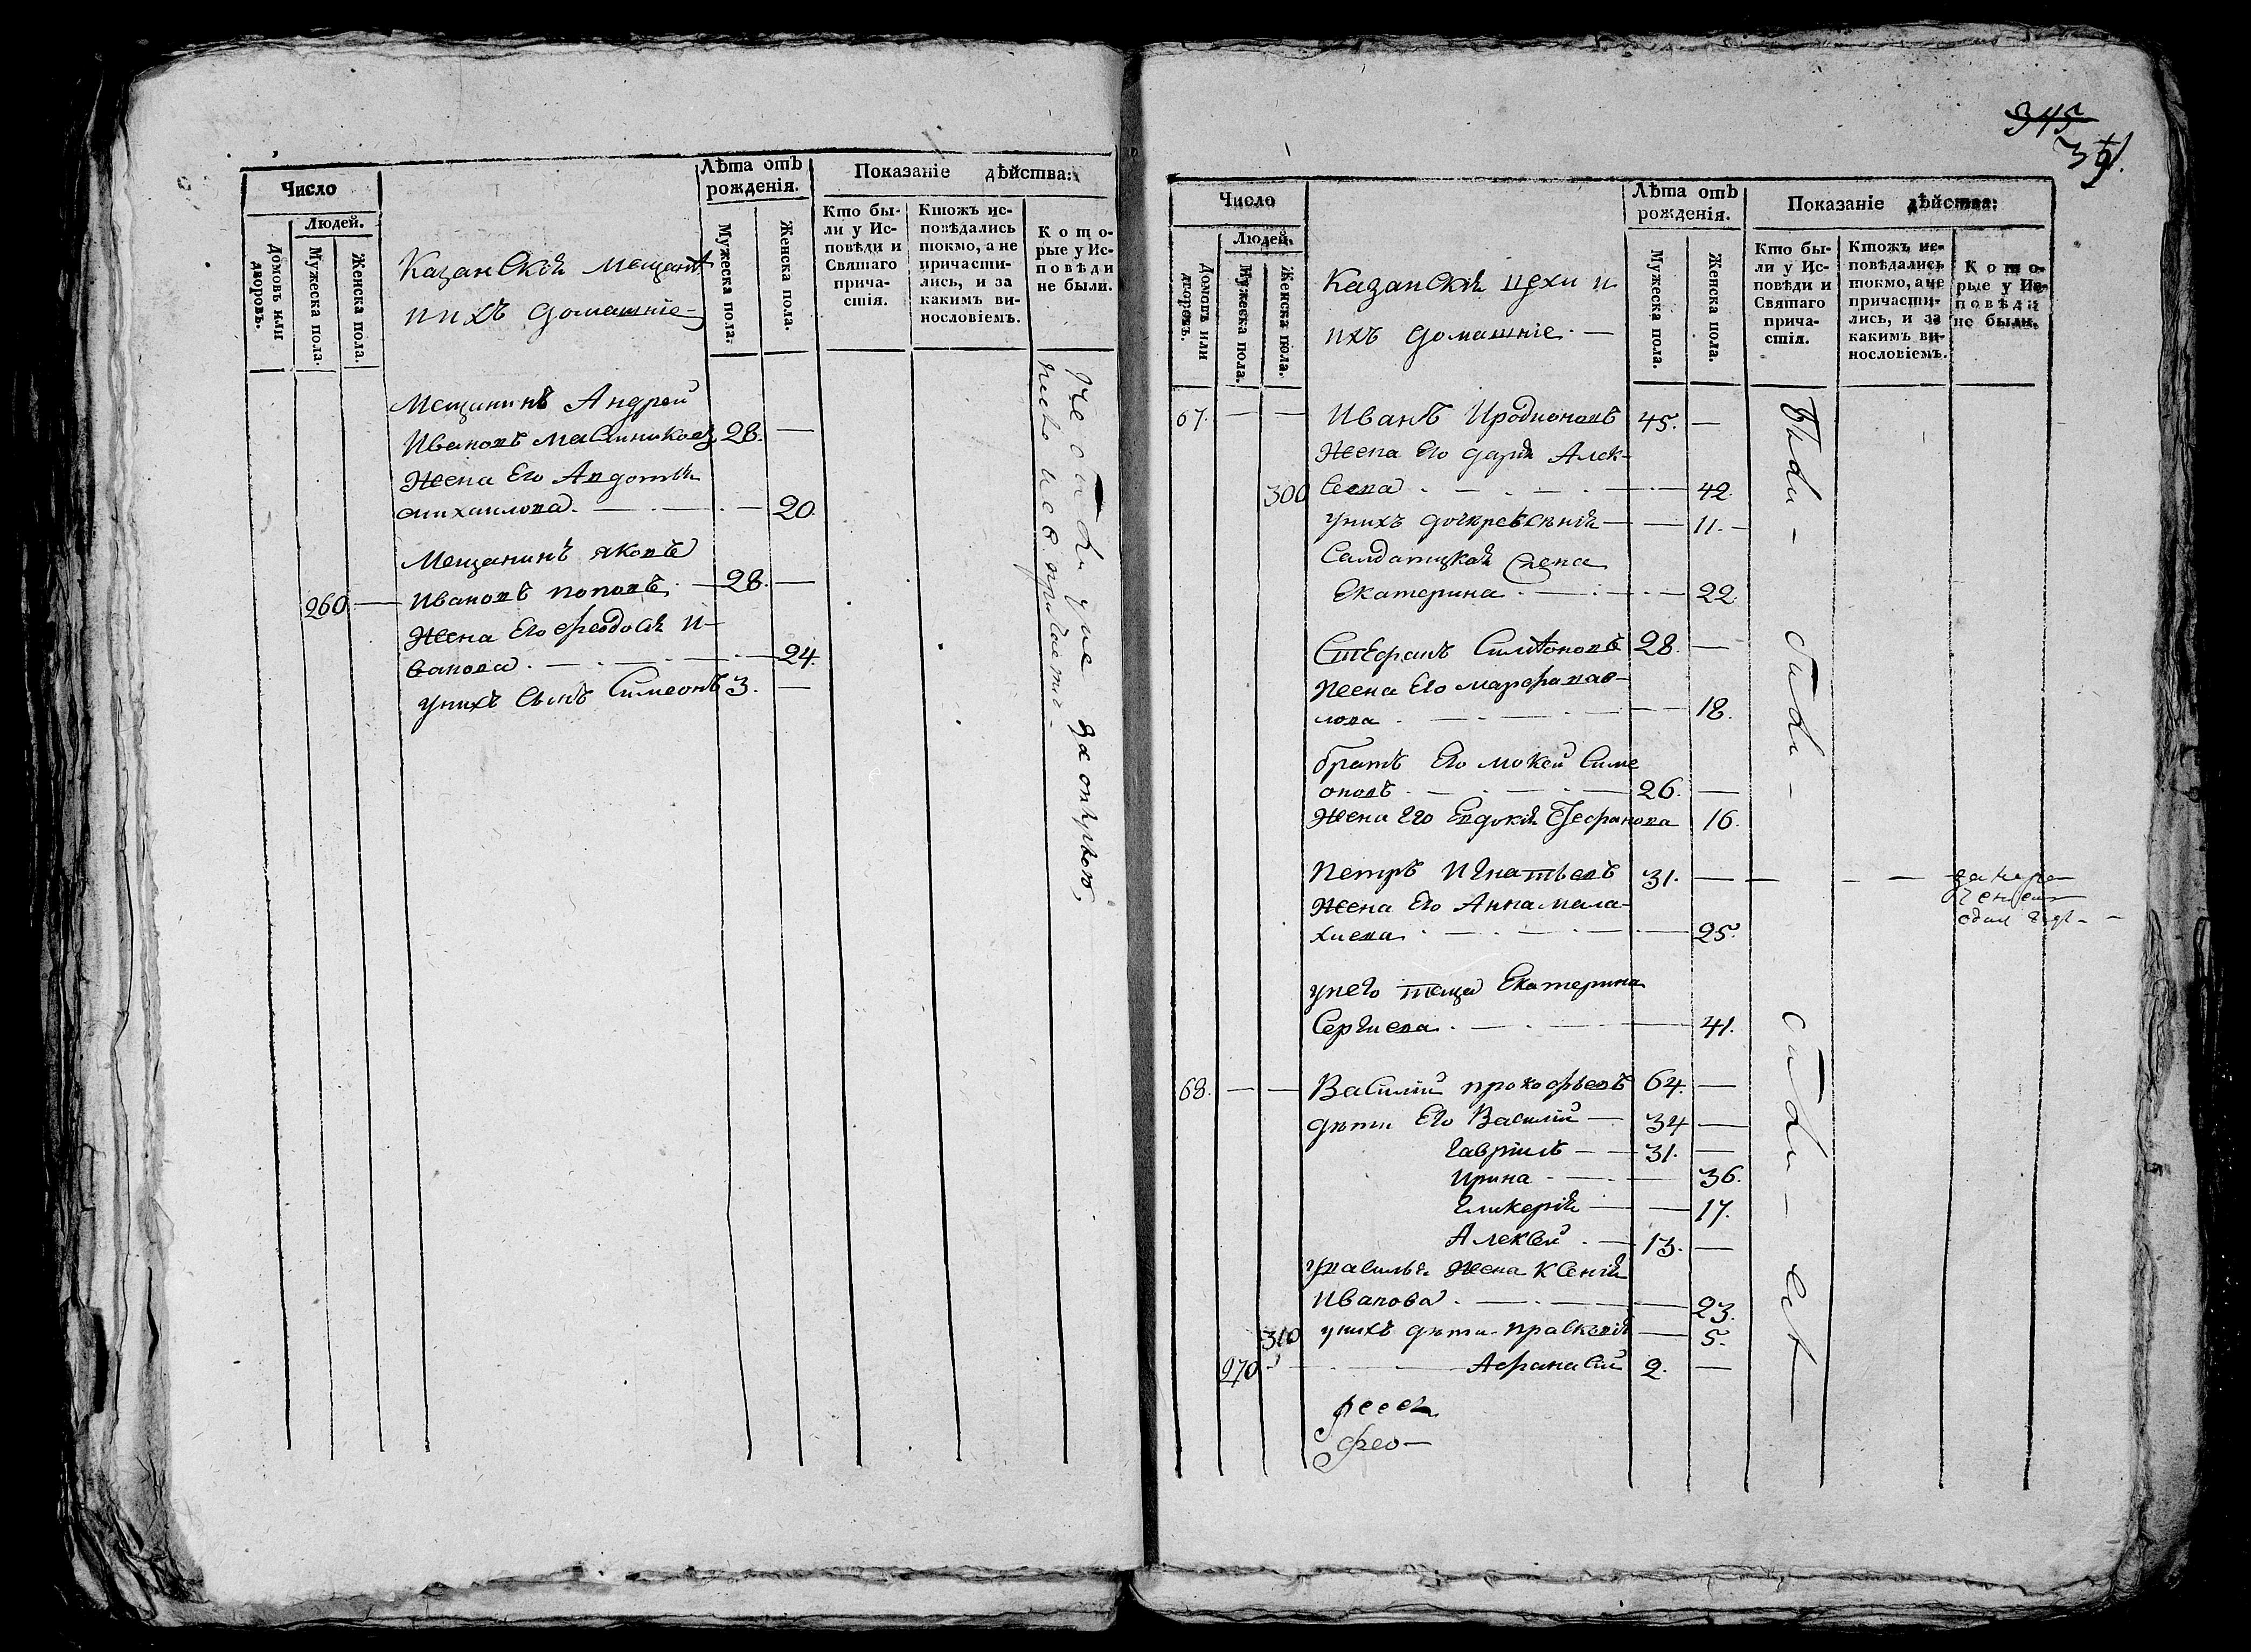 Число
Людей.
Домовъ или дворовъ.
Мужеска пола.
Женска пола.
Казанскія мещаня
и ихъ домашніе
Лѣта отъ рожденія.
Мужеска пола.
Женска пола.
Показаніе дѣйства:
Кто были у Исповѣди и Святаго причастія.
Ктожъ исповѣдались токмо, а не причастились, и за какимъ винословіемъ.
Которые у Исповѣди не были.
Мещанинъ Андрей
Ивановъ Масленниковъ 28. —
Жена Его Авдотья
михаилова. — 20.
Мещанинъ яковъ
260 — Ивановъ поповъ. — 28. —
Жена Его Феодосія И-
ванова. — 24.
у нихъ сынъ Симеонъ 3. —
345
Число
Людей.
Домовъ или дворовъ.
Мужеска пола.
Женска пола.
Казанскія цехи и
ихъ домашніе. —
Лѣта отъ рожденія.
Мужеска пола.
Женска пола.
Показаніе дѣйства:
Кто были у Исповѣди и Святаго причастія.
Ктожъ исповѣдались токмо, а не причастились, и за какимъ винословіемъ.
Которые у Исповѣди не были.
67. — — Иванъ Иродионовъ 45. —
Жена Его дарія Алек-
300 сеева. — 42.
у нихъ дочь — 11. —
Салдатцкая жена
Екатерина. — 22.
Стефанъ Симеоновъ 28. —
Жена Его марфа пав-
лова. — 18.
братъ Его мокей Симе
оновъ. — 26. —
Жена Его Евдокія Стефанова 16.
Петръ Игнатьевъ 31. —
Жена Его Анна мала-
хиева. — 25.
у него теща Екатерина
Сергиева. — 41.
68. — — Василий прокофьевъ 64. —
дѣти Его Василий — 34 —
Гавріилъ — 31. —
Ирина — 36.
Гликерія — 17.
Алексей. — 13. —
у василья Жена Ксенія
Иванова. — 23.
310 у нихъ дѣти — 5.
270 — Афанасий 2. —